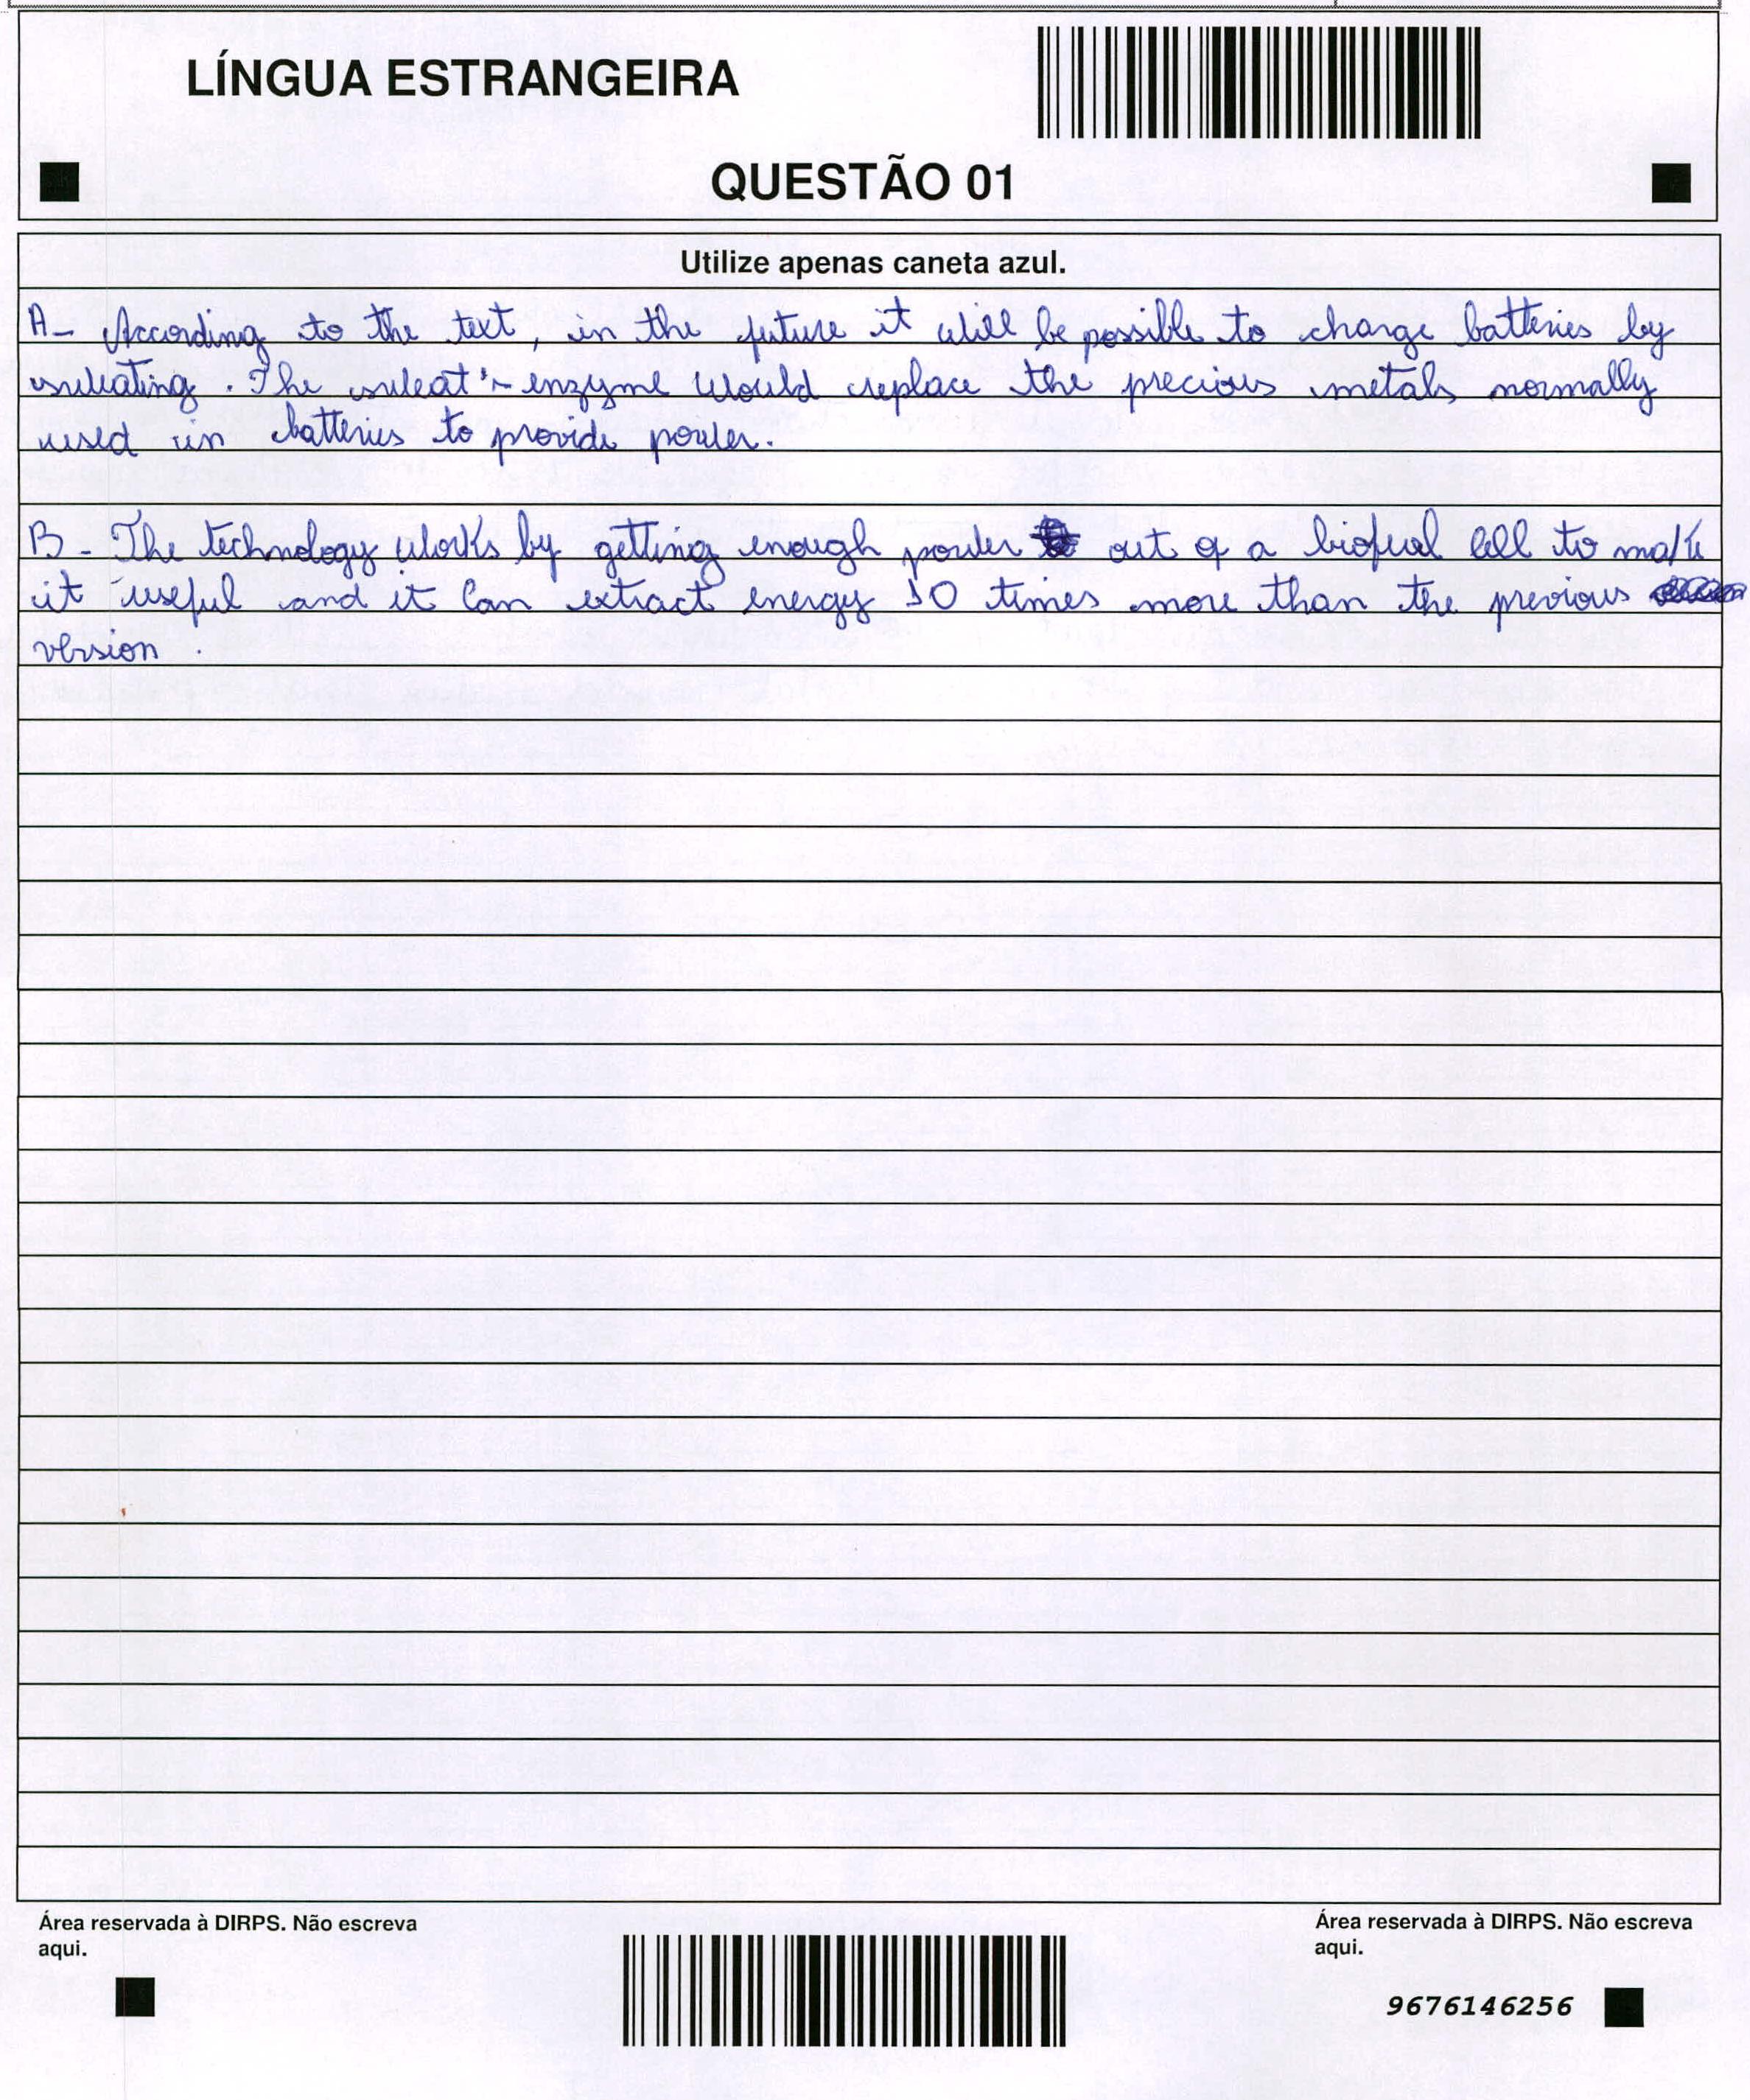 LÍNGUA ESTRANGEIRA
QUESTÃO 01
Utilize apenas caneta azul.
A- According to the text, in the future it will be possible to charge batteries by
sweating. The sweat's enzyme would replace the precious metals normally
used in batteries to provide power.
B- The technology works by getting enough power out of a biofuel cell to make
it useful and it can extract energy 10 times more than the previous
version.
Área reservada à DIRPS. Não escreva
aqui.
Área reservada à DIRPS. Não escreva
aqui.
9676146256